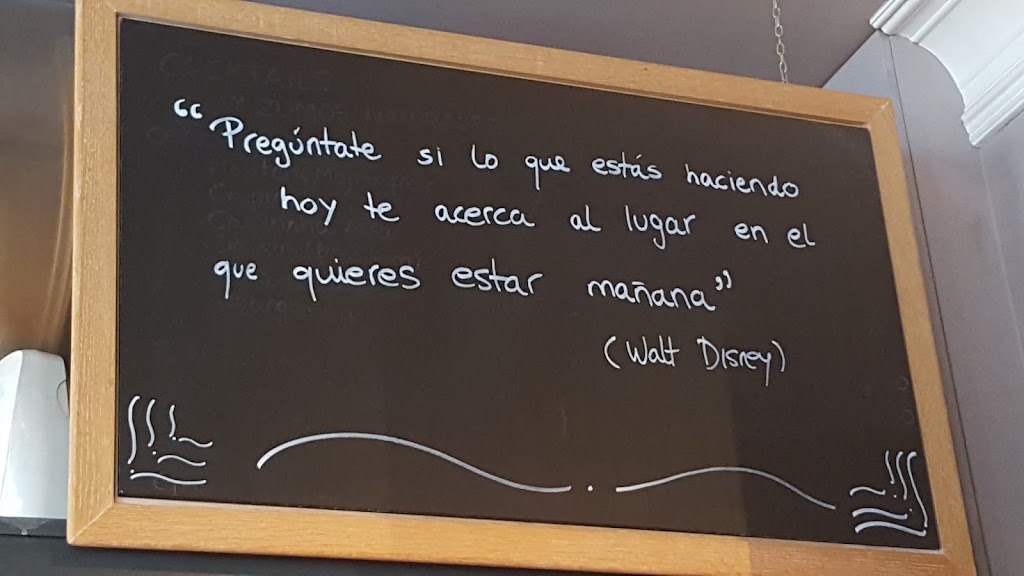 “Pregúntate si lo que estás haciendo
hoy te acerca al lugar en el
que quieres estar mañana”
(Walt Disney)